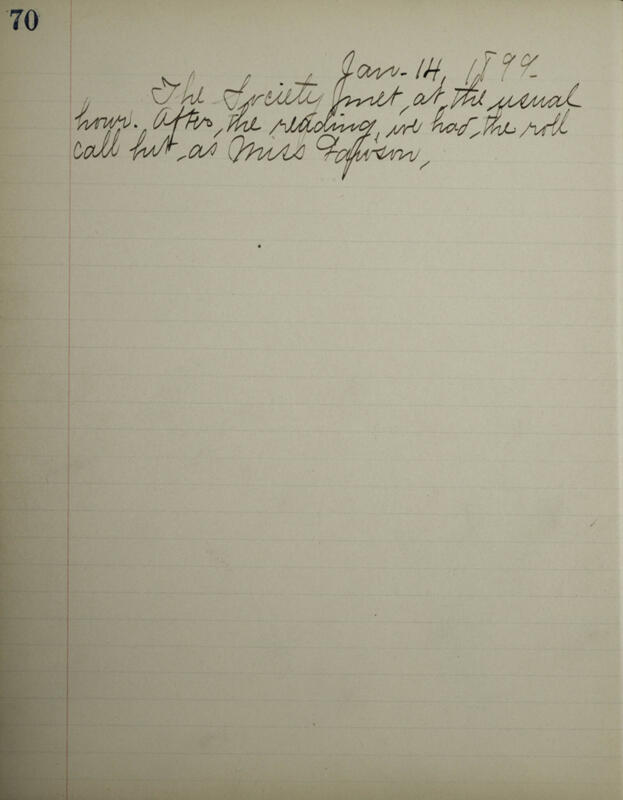 70
Jan. 14, 1899.
The Society met at the usual
hour. After the reading, we had the roll
call but as Miss